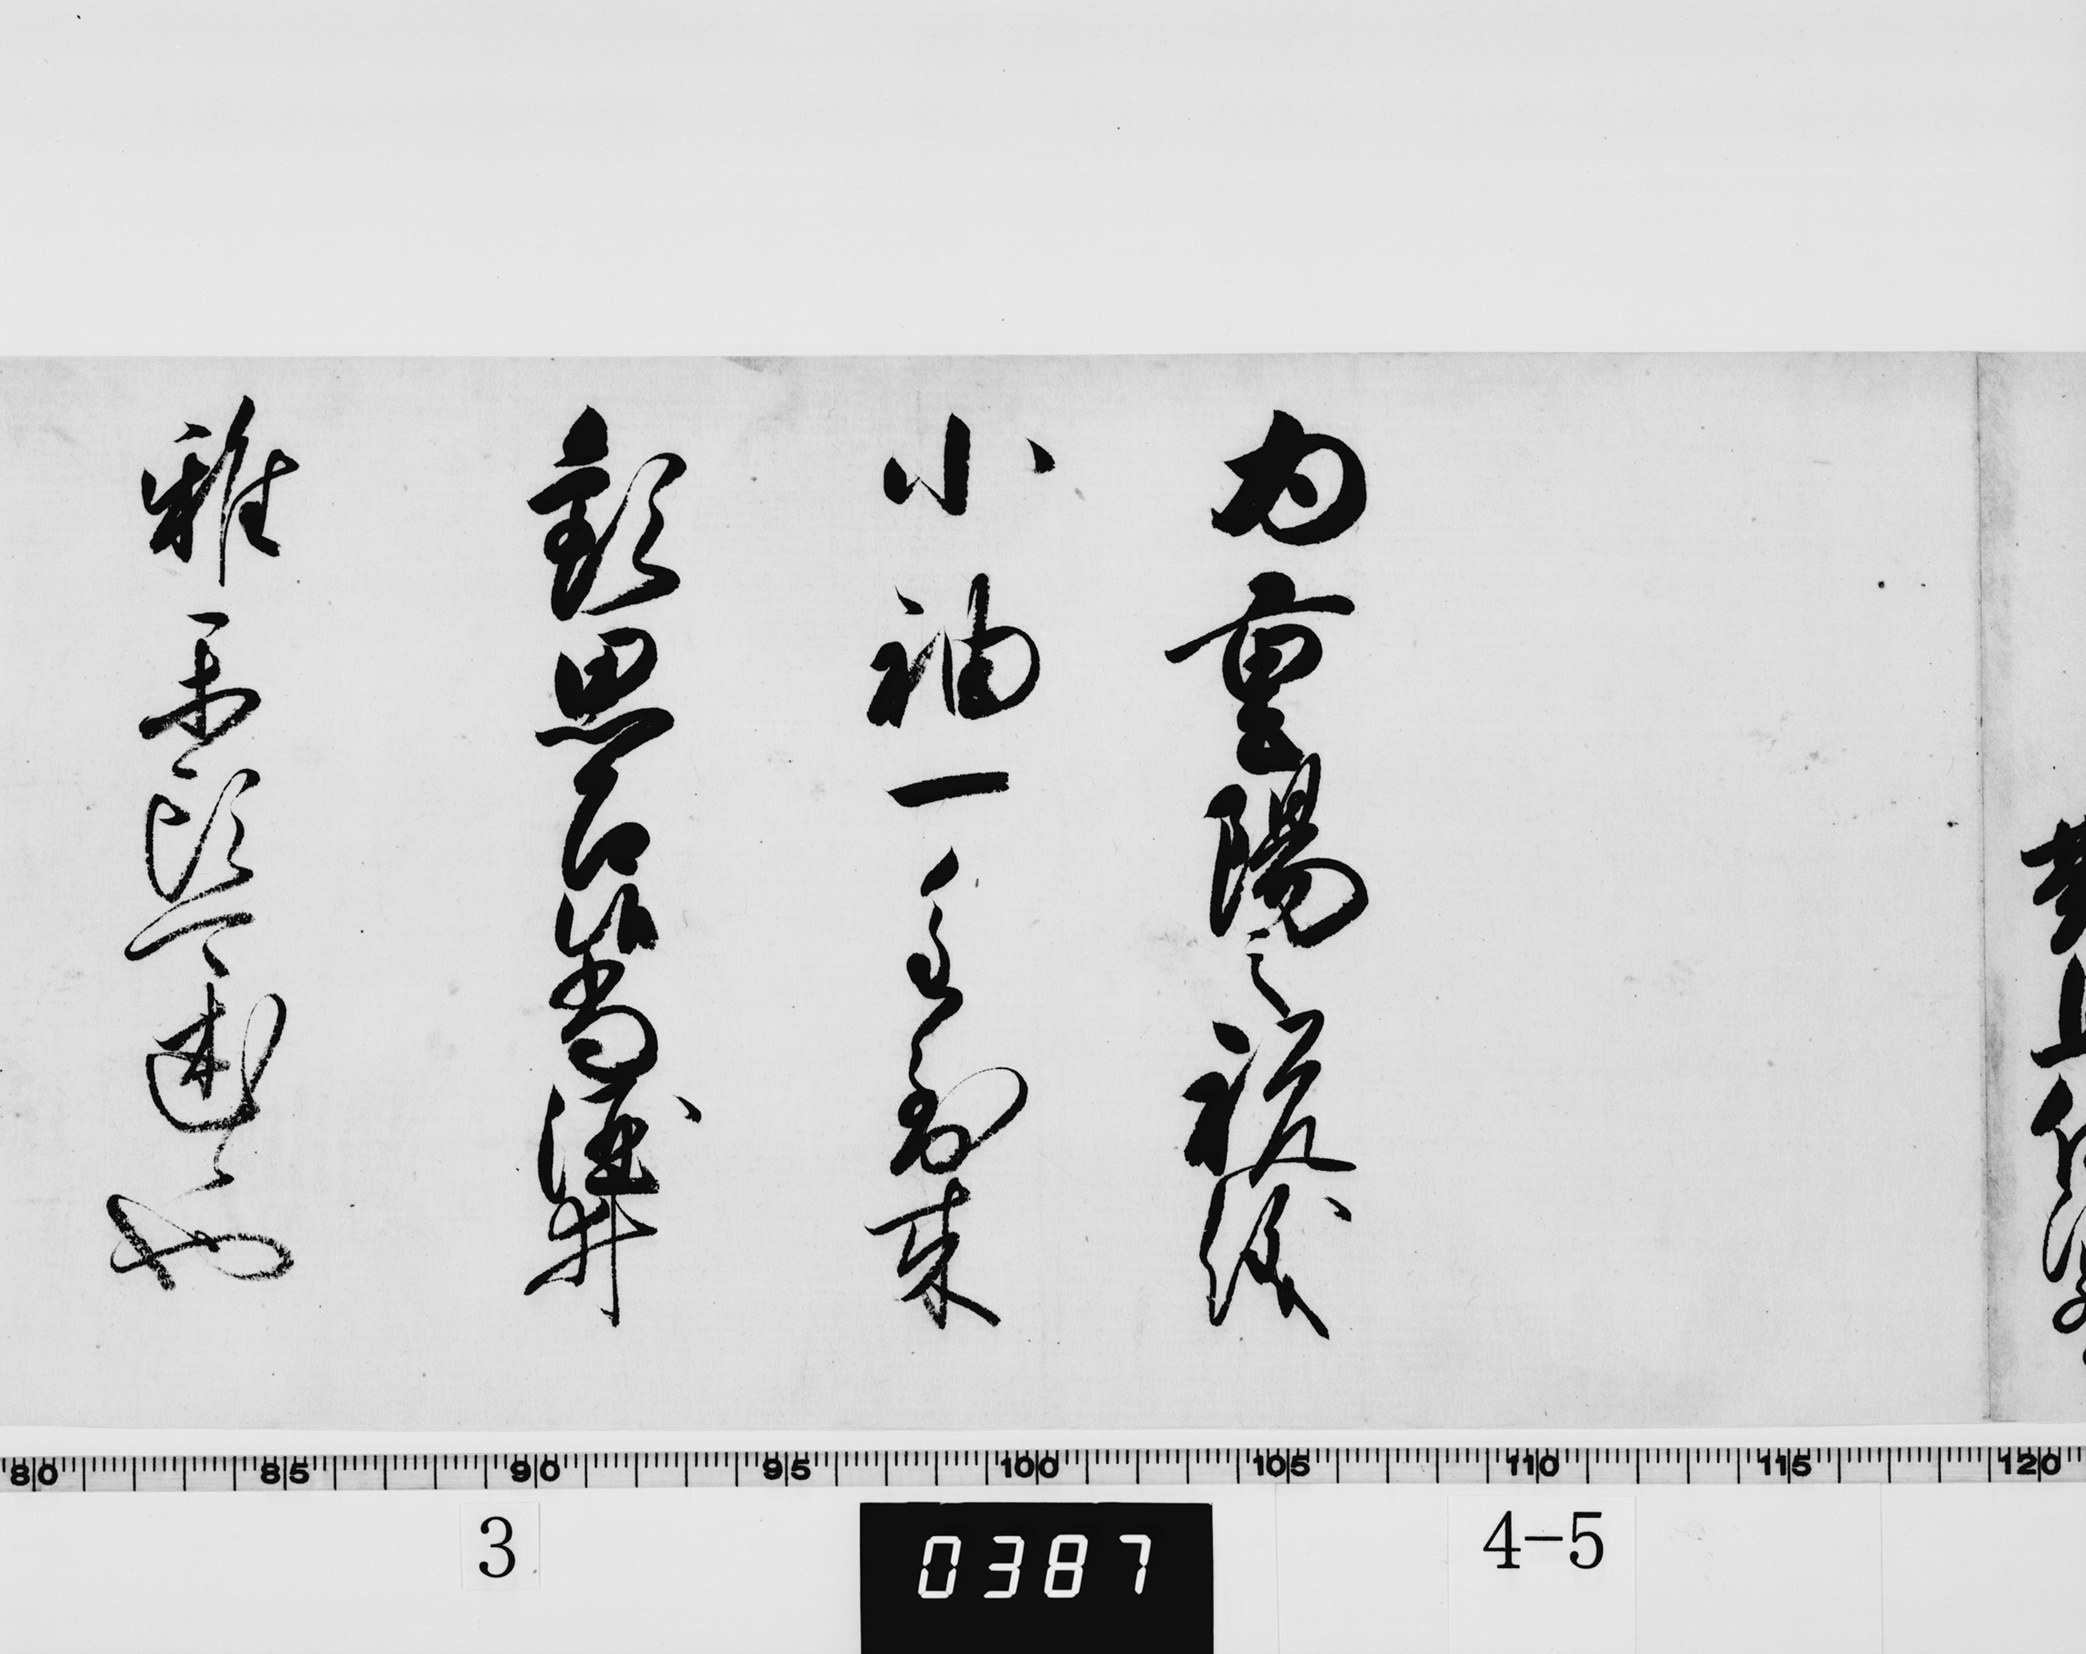 為重陽之祝儀
小袖一重到来
歓思召候尚酒井
雅楽頭可述候也
80 85 90 95 100 105 110 115 120
3 0387 4-5